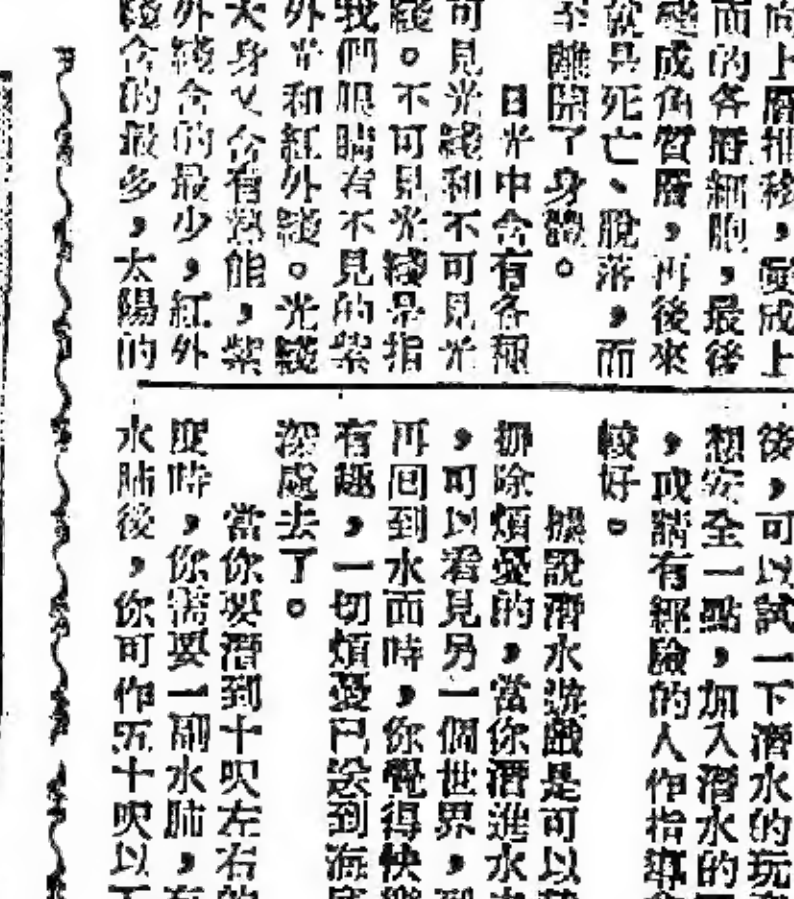 向上層推移，變成上
而的各層細胞，最後
變成角質層，再後來
就是死亡、脫落，而
至離開了身體。
日光中含有各種
可見光綫和不可見光
綫。不可見光綫是指
我們眼睛看不見的紫
外光和紅外綫。光綫
本身又含有熱能，紫
外綫含的最少，紅外
綫含的最多，太陽的
後，可以試一下潛水的玩
想安全一點，加入潛水的
，或請有經驗的人作指導
較好。
據說潛水遊戲是可以
掃除煩憂的，當你潛進水
，可以看見另一個世界，到
再回到水面時，你覺得快樂
有趣，一切煩憂已送到海底
深處去了。
當你要潛到十呎左右的
度時，你需要一副水肺，有
水肺後，你可作五十呎以下